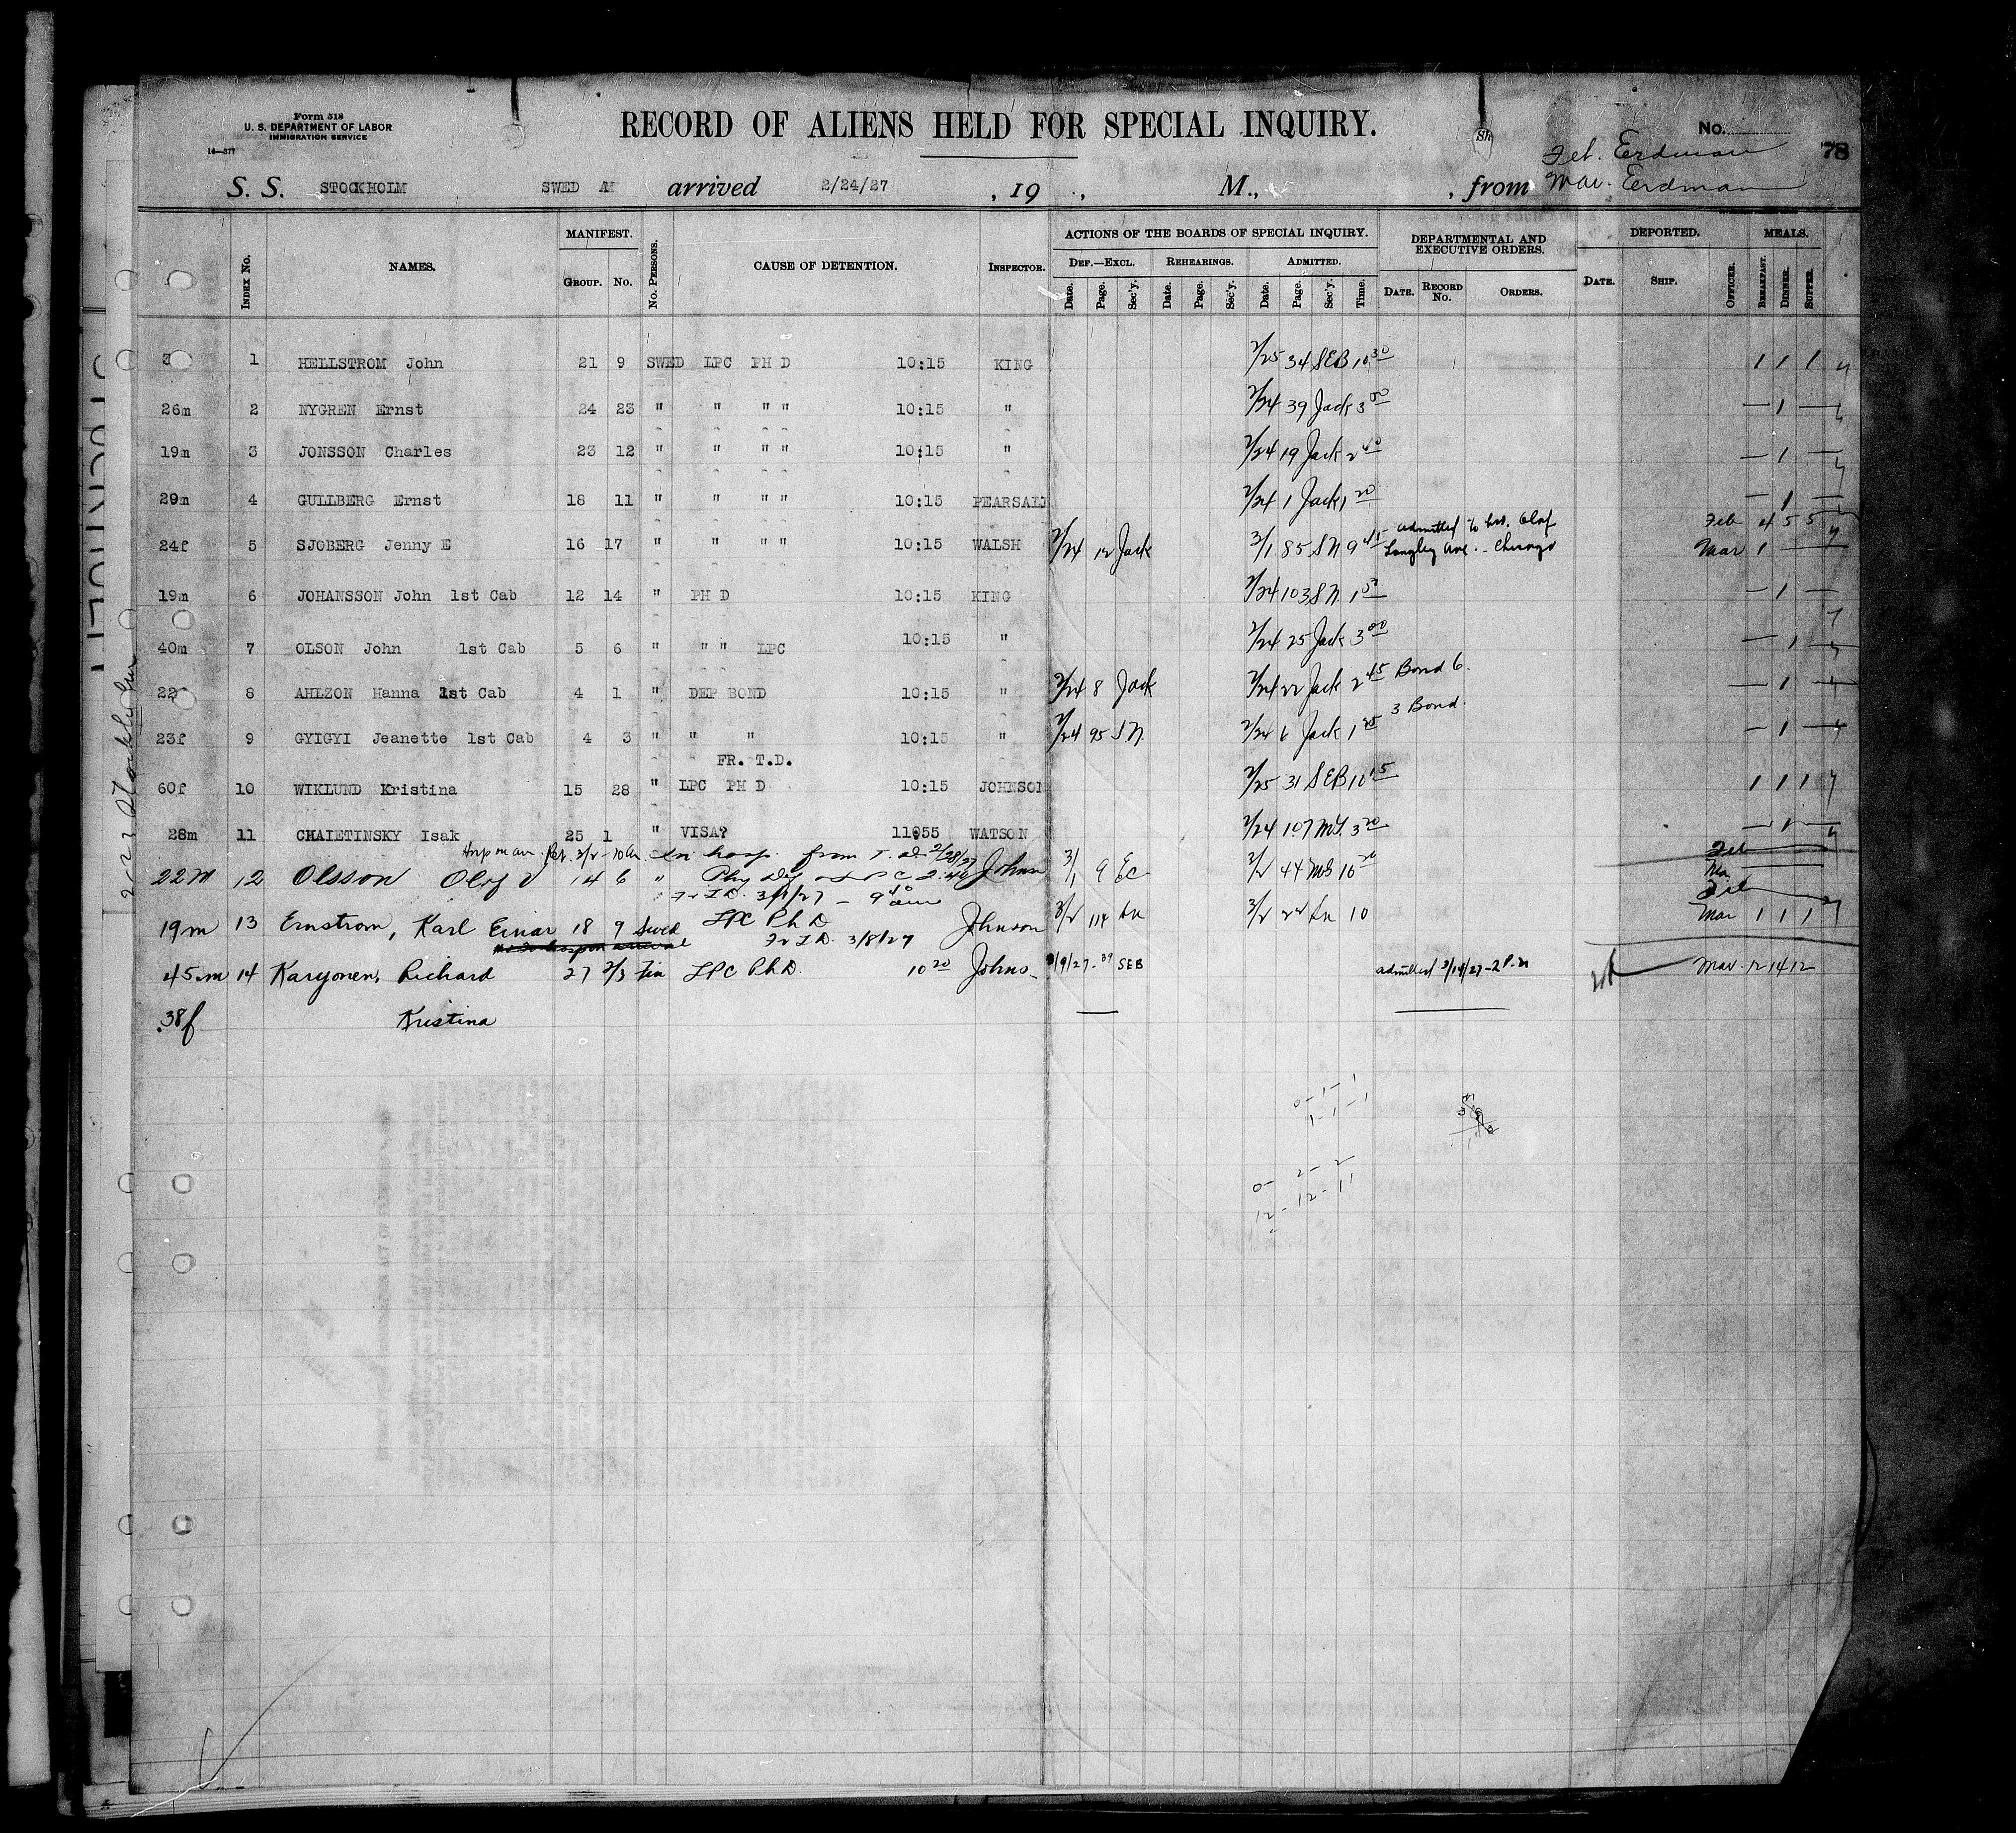 Form 518
U. S. DEPARTMENT OF LABOR
IMMIGRATION SERVICE
16—377
RECORD OF ALIENS HELD FOR SPECIAL INQUIRY.
Sh
No.
78
Feb. Erdman
Mar. Erdman
S. S. STOCKHOLM SWED AM arrived 2/24/27, 19 , M., , from
INDEX No. NAMES. MANIFEST. GROUP. No. No. PERSONS. CAUSE OF DETENTION. INSPECTOR. ACTIONS OF THE BOARDS OF SPECIAL INQUIRY. DEF.—EXCL. Date. Page. Sec'y. REHEARINGS. Date. Page. Sec'y. ADMITTED. Date. Page. Sec'y. Time. DEPARTMENTAL AND EXECUTIVE ORDERS. DATE. RECORD No. ORDERS. DEPORTED. DATE. SHIP. OFFICER. MEALS. BREAKFAST. DINNER. SUPPER.
3 1 HELLSTROM John 21 9 SWED LPC PH D 10:15 KING 2/25 34 SEB 10 30 1 1 1
26m 2 NYGREN Ernst 24 23 " " " " 10:15 " 2/24 39 Jack 3 00 — 1 —
19m 3 JONSSON Charles 23 12 " " " " 10:15 " 2/24 19 Jack 2 40 — 1 —
29m 4 GULLBERG Ernst 18 11 " " " " 10:15 PEARSALL 2/24 1 Jack 1 20 — 1 —
24f 5 SJOBERG Jenny E 16 17 " " " " 10:15 WALSH 2/24 12 Jack 3/1 85 SN 9 45 admitted to hus. Olof Feb 4 5 5
Langley Ave. Chicago Mar 1 —
19m 6 JOHANSSON John 1st Cab 12 14 " PH D 10:15 KING 2/24 103 SN 1 — 1 —
40m 7 OLSON John 1st Cab 5 6 " " " LPC 10:15 " 2/24 25 Jack 3 00 — 1 —
22 8 AHLZON Hanna 1st Cab 4 1 " DEP BOND 10:15 " 2/24 8 Jack 2/24 22 Jack 2 45 Bond 6. — 1 —
23f 9 GYIGYI Jeanette 1st Cab 4 3 " " " 10:15 " 2/24 95 SN 2/24 6 Jack 1 25 3 Bond. — 1 —
FR. T.D.
60f 10 WIKLUND Kristina 15 28 " LPC PH D 10:15 JOHNSON 2/25 31 SEB 10 15 1 1 1
28m 11 CHAIETINSKY Isak 25 1 " VISA? 11055 WATSON 2/24 107 3 20 — 1 —
In hosp. from T. D. 2/28/27
22m 12 Olsson Olof 14 6 " Phy Def LPC 2:40 Johnson 3/1 9 EC 3/2 44 10 20 Feb
Fr T.D. 3/1/27 — 9 am
19m 13 Ernstrom, Karl Einar 18 9 Swed LPC Ph D Johnson 3/2 114 3/2 24 10 Mar 1 1 1
Fr T.D. 3/8/27
45m 14 Karyonen, Richard 27 2/3 Fin LPC Ph.D. 10 20 Johns 3/9/27 - 39 SEB admitted 3/14/27 Mar 12 14 12
38f Kristina
0 - 1 - 1
1 - 1 - 1
0 - 2 - 2
12 - 12 - 11